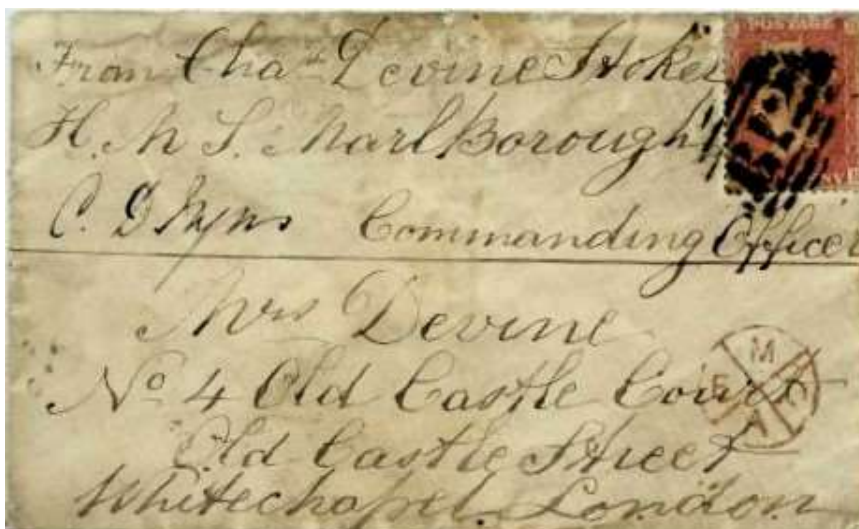 From Chas Devine Stoker
H. M S. Marlborough
Commanding Officer
Mrs Devine
No 4 Old Castle Court
Old Castle Street
Whitechapel. London
POSTAGE
M